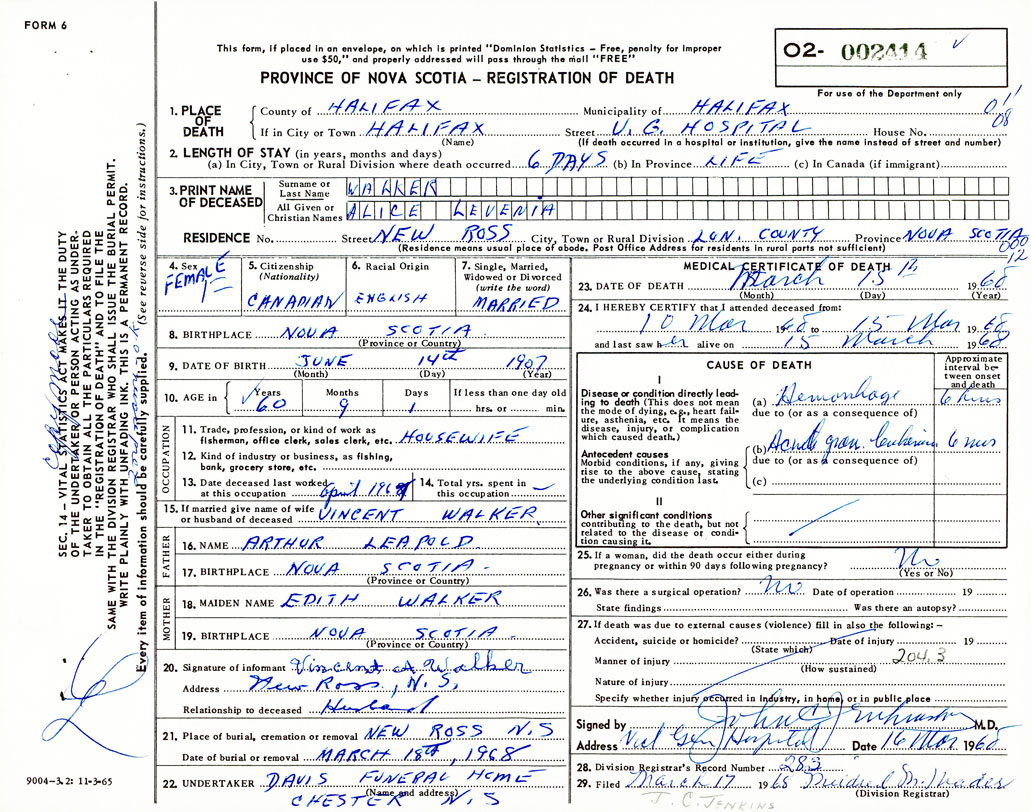 FORM 6
This form, if placed in an envelope, on which is printed "Dominion Statistics – Free, penalty for improper
use $50," and properly addressed will pass through the mail "FREE"
PROVINCE OF NOVA SCOTIA – REGISTRATION OF DEATH
O2- 002414
For use of the Department only
1. PLACE OF DEATH
County of HALIFAX Municipality of HALIFAX
If in City or Town HALIFAX Street V. G. HOSPITAL House No.
(Name) (If death occurred in a hospital or institution, give the name instead of street and number)
08
2. LENGTH OF STAY (in years, months and days)
(a) In City, Town or Rural Division where death occurred 6 DAYS (b) In Province LIFE (c) In Canada (if immigrant)
3. PRINT NAME OF DECEASED
Surname or Last Name WALKER
All Given or Christian Names ALICE LEVENIA
RESIDENCE No. Street NEW ROSS City, Town or Rural Division LUN. COUNTY Province NOVA SCOTIA
(Residence means usual place of abode. Post Office Address for residents in rural parts not sufficient)
000
12
4. Sex FEMALE
5. Citizenship (Nationality) CANADIAN
6. Racial Origin ENGLISH
7. Single, Married, Widowed or Divorced (write the word) MARRIED
8. BIRTHPLACE NOVA SCOTIA
(Province or Country)
9. DATE OF BIRTH JUNE 14th 1907
(Month) (Day) (Year)
10. AGE in Years 60 Months 9 Days 1 If less than one day old
hrs. or min.
OCCUPATION
11. Trade, profession, or kind of work as
fisherman, office clerk, sales clerk, etc. HOUSEWIFE
12. Kind of industry or business, as fishing,
bank, grocery store, etc.
13. Date deceased last worked
at this occupation April 196
14. Total yrs. spent in
this occupation
15. If married give name of wife
or husband of deceased VINCENT WALKER
FATHER
16. NAME ARTHUR LEAPOLD
17. BIRTHPLACE NOVA SCOTIA
(Province or Country)
MOTHER
18. MAIDEN NAME EDITH WALKER
19. BIRTHPLACE NOVA SCOTIA
(Province or Country)
20. Signature of informant Vincent A Walker
Address New Ross, N.S,
Relationship to deceased Husband
21. Place of burial, cremation or removal NEW ROSS N.S
Date of burial or removal MARCH 18th, 1968
22. UNDERTAKER DAVIS FUNERAL HOME
(Name and address)
CHESTER N.S
MEDICAL CERTIFICATE OF DEATH
23. DATE OF DEATH March 15 1968
(Month) (Day) (Year)
24. I HEREBY CERTIFY that I attended deceased from:
10 Mar 1968 to 15 Mar 1968
and last saw her alive on 15 March 1968
CAUSE OF DEATH
Approximate interval between onset and death
I
Disease or condition directly leading to death (This does not mean the mode of dying, e.g., heart failure, asthenia, etc. It means the disease, injury, or complication which caused death.)
(a) Hemorrhage 6 hrs
due to (or as a consequence of)
Antecedent causes
Morbid conditions, if any, giving rise to the above cause, stating the underlying condition last.
(b) Acute gran. leukemia 6 mos
due to (or as a consequence of)
(c)
II
Other significant conditions
contributing to the death, but not related to the disease or condition causing it.
25. If a woman, did the death occur either during
pregnancy or within 90 days following pregnancy? No
(Yes or No)
26. Was there a surgical operation? No Date of operation 19
State findings Was there an autopsy?
27. If death was due to external causes (violence) fill in also the following: –
Accident, suicide or homicide? Date of injury 19
(State which)
204.3
Manner of injury
(How sustained)
Nature of injury
Specify whether injury occurred in Industry, in home, or in public place
Signed by M.D.
Address Vict Gen Hospital Date 16 Mar 1968
28. Division Registrar's Record Number 283
29. Filed March 17 1968
(Division Registrar)
J. C. JENKINS
SEC. 14 – VITAL STATISTICS ACT MAKES IT THE DUTY
OF THE UNDERTAKER OR PERSON ACTING AS UNDER-
TAKER TO OBTAIN ALL THE PARTICULARS REQUIRED
IN THE "REGISTRATION OF DEATH" AND TO FILE THE
SAME WITH THE DIVISION REGISTRAR WHO SHALL ISSUE THE BURIAL PERMIT.
WRITE PLAINLY WITH UNFADING INK. THIS IS A PERMANENT RECORD.
Every item of information should be carefully supplied. (See reverse side for instructions.)
9004–3.2: 11-3-65